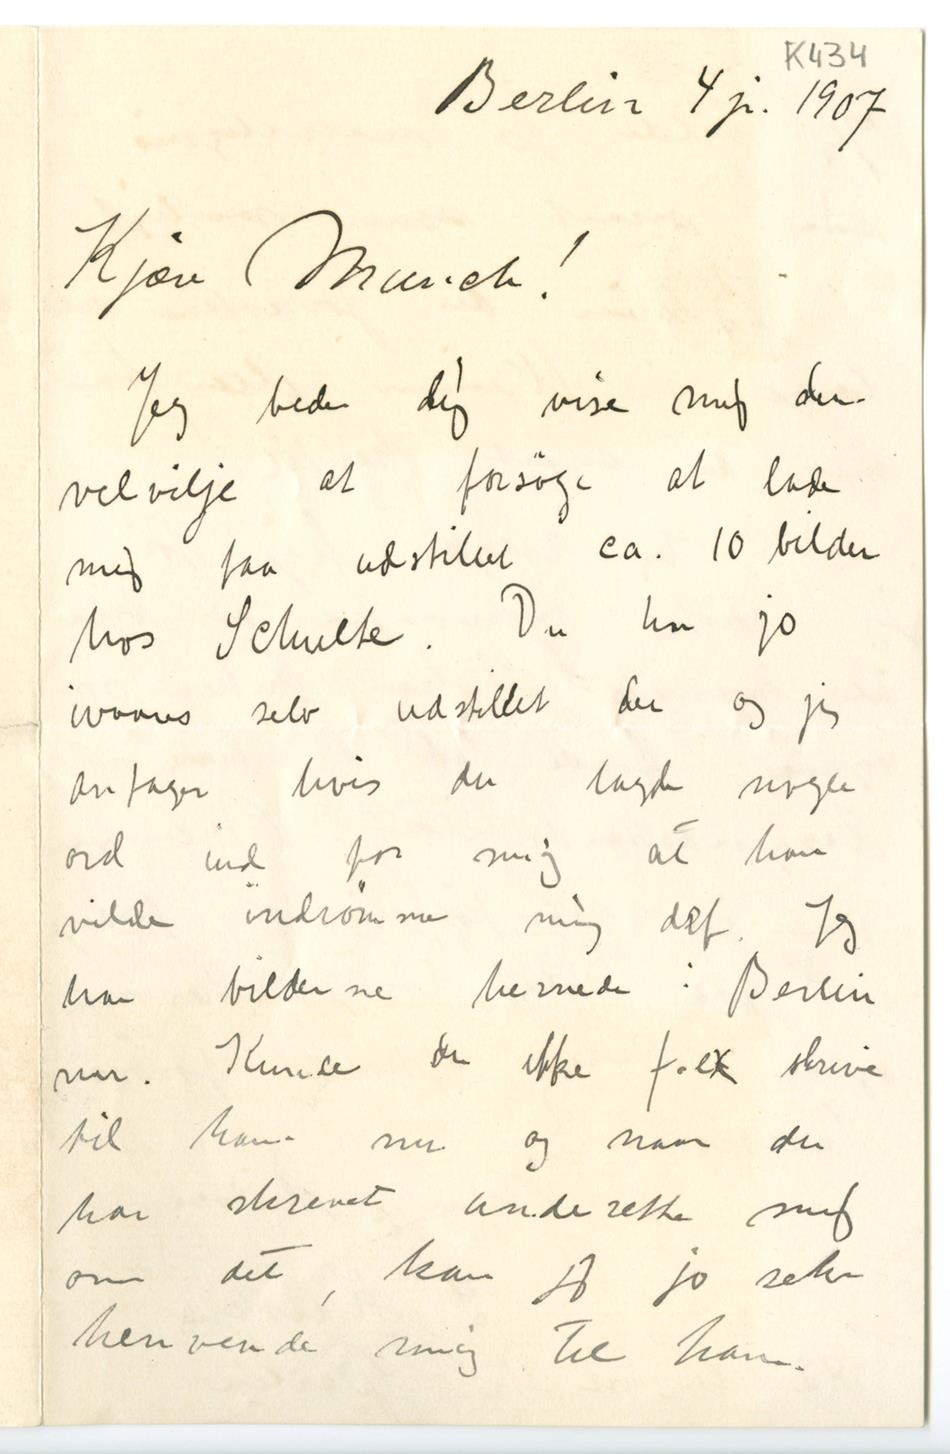 K434
Berlin 4 ji. 1907
Kjære Munch!
Jeg beder dig vise mig den
velvilje at forsøge at lade
mig faa udstillet ca. 10 bilder
hos Schulte. Du har jo
ivaares selv udstillet der og jeg
antager hvis du lagde nogle
ord ind for mig at han
vilde indrömme mig det. Jeg
har bilderne hernede i Berlin
nu. Kunde du ikke f. ex skrive
til ham nu og naar du
har skrevet underrette mig
om det, kan jeg jo selv
henvende mig til ham.